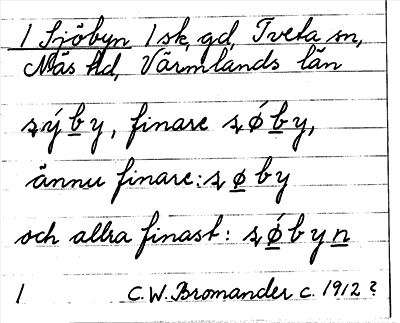 1 Sjöbyn 1 sk, gd, Tveta sn,
Näs hd, Värmlands län
sýby, finare søby,
ännu finare: søby
och allra finast: søbyn
1 C.W. Bromander c. 1912?